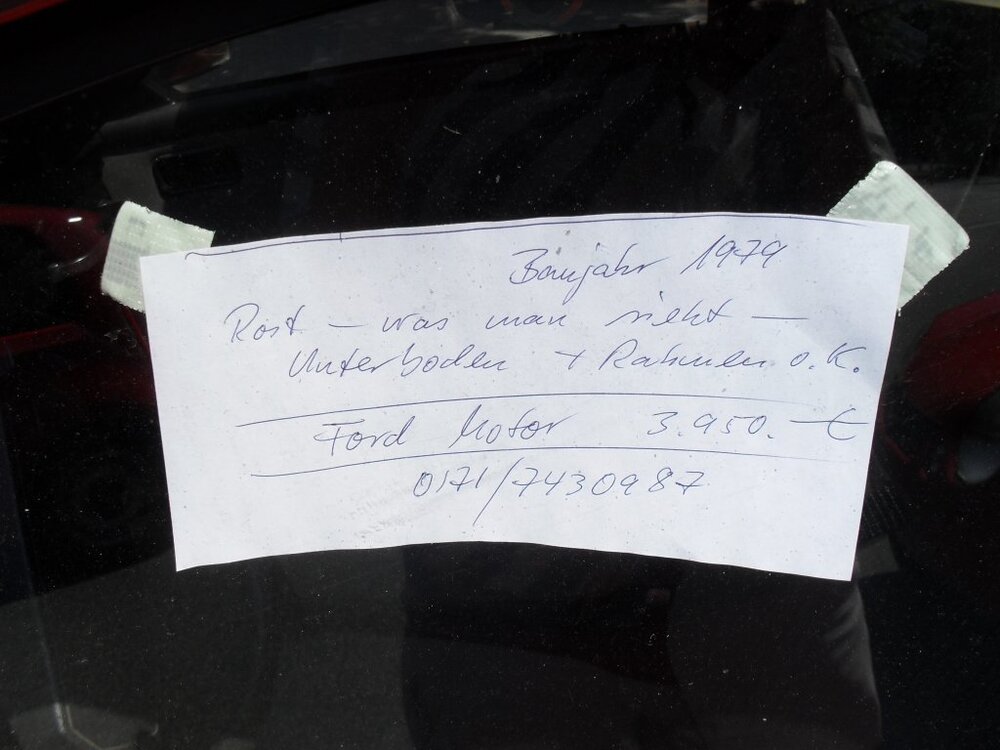 Baujahr 1979
Rost – was man sieht –
Unterboden + Rahmen o.K.
Ford Motor 3.950.–€
0171/7430987